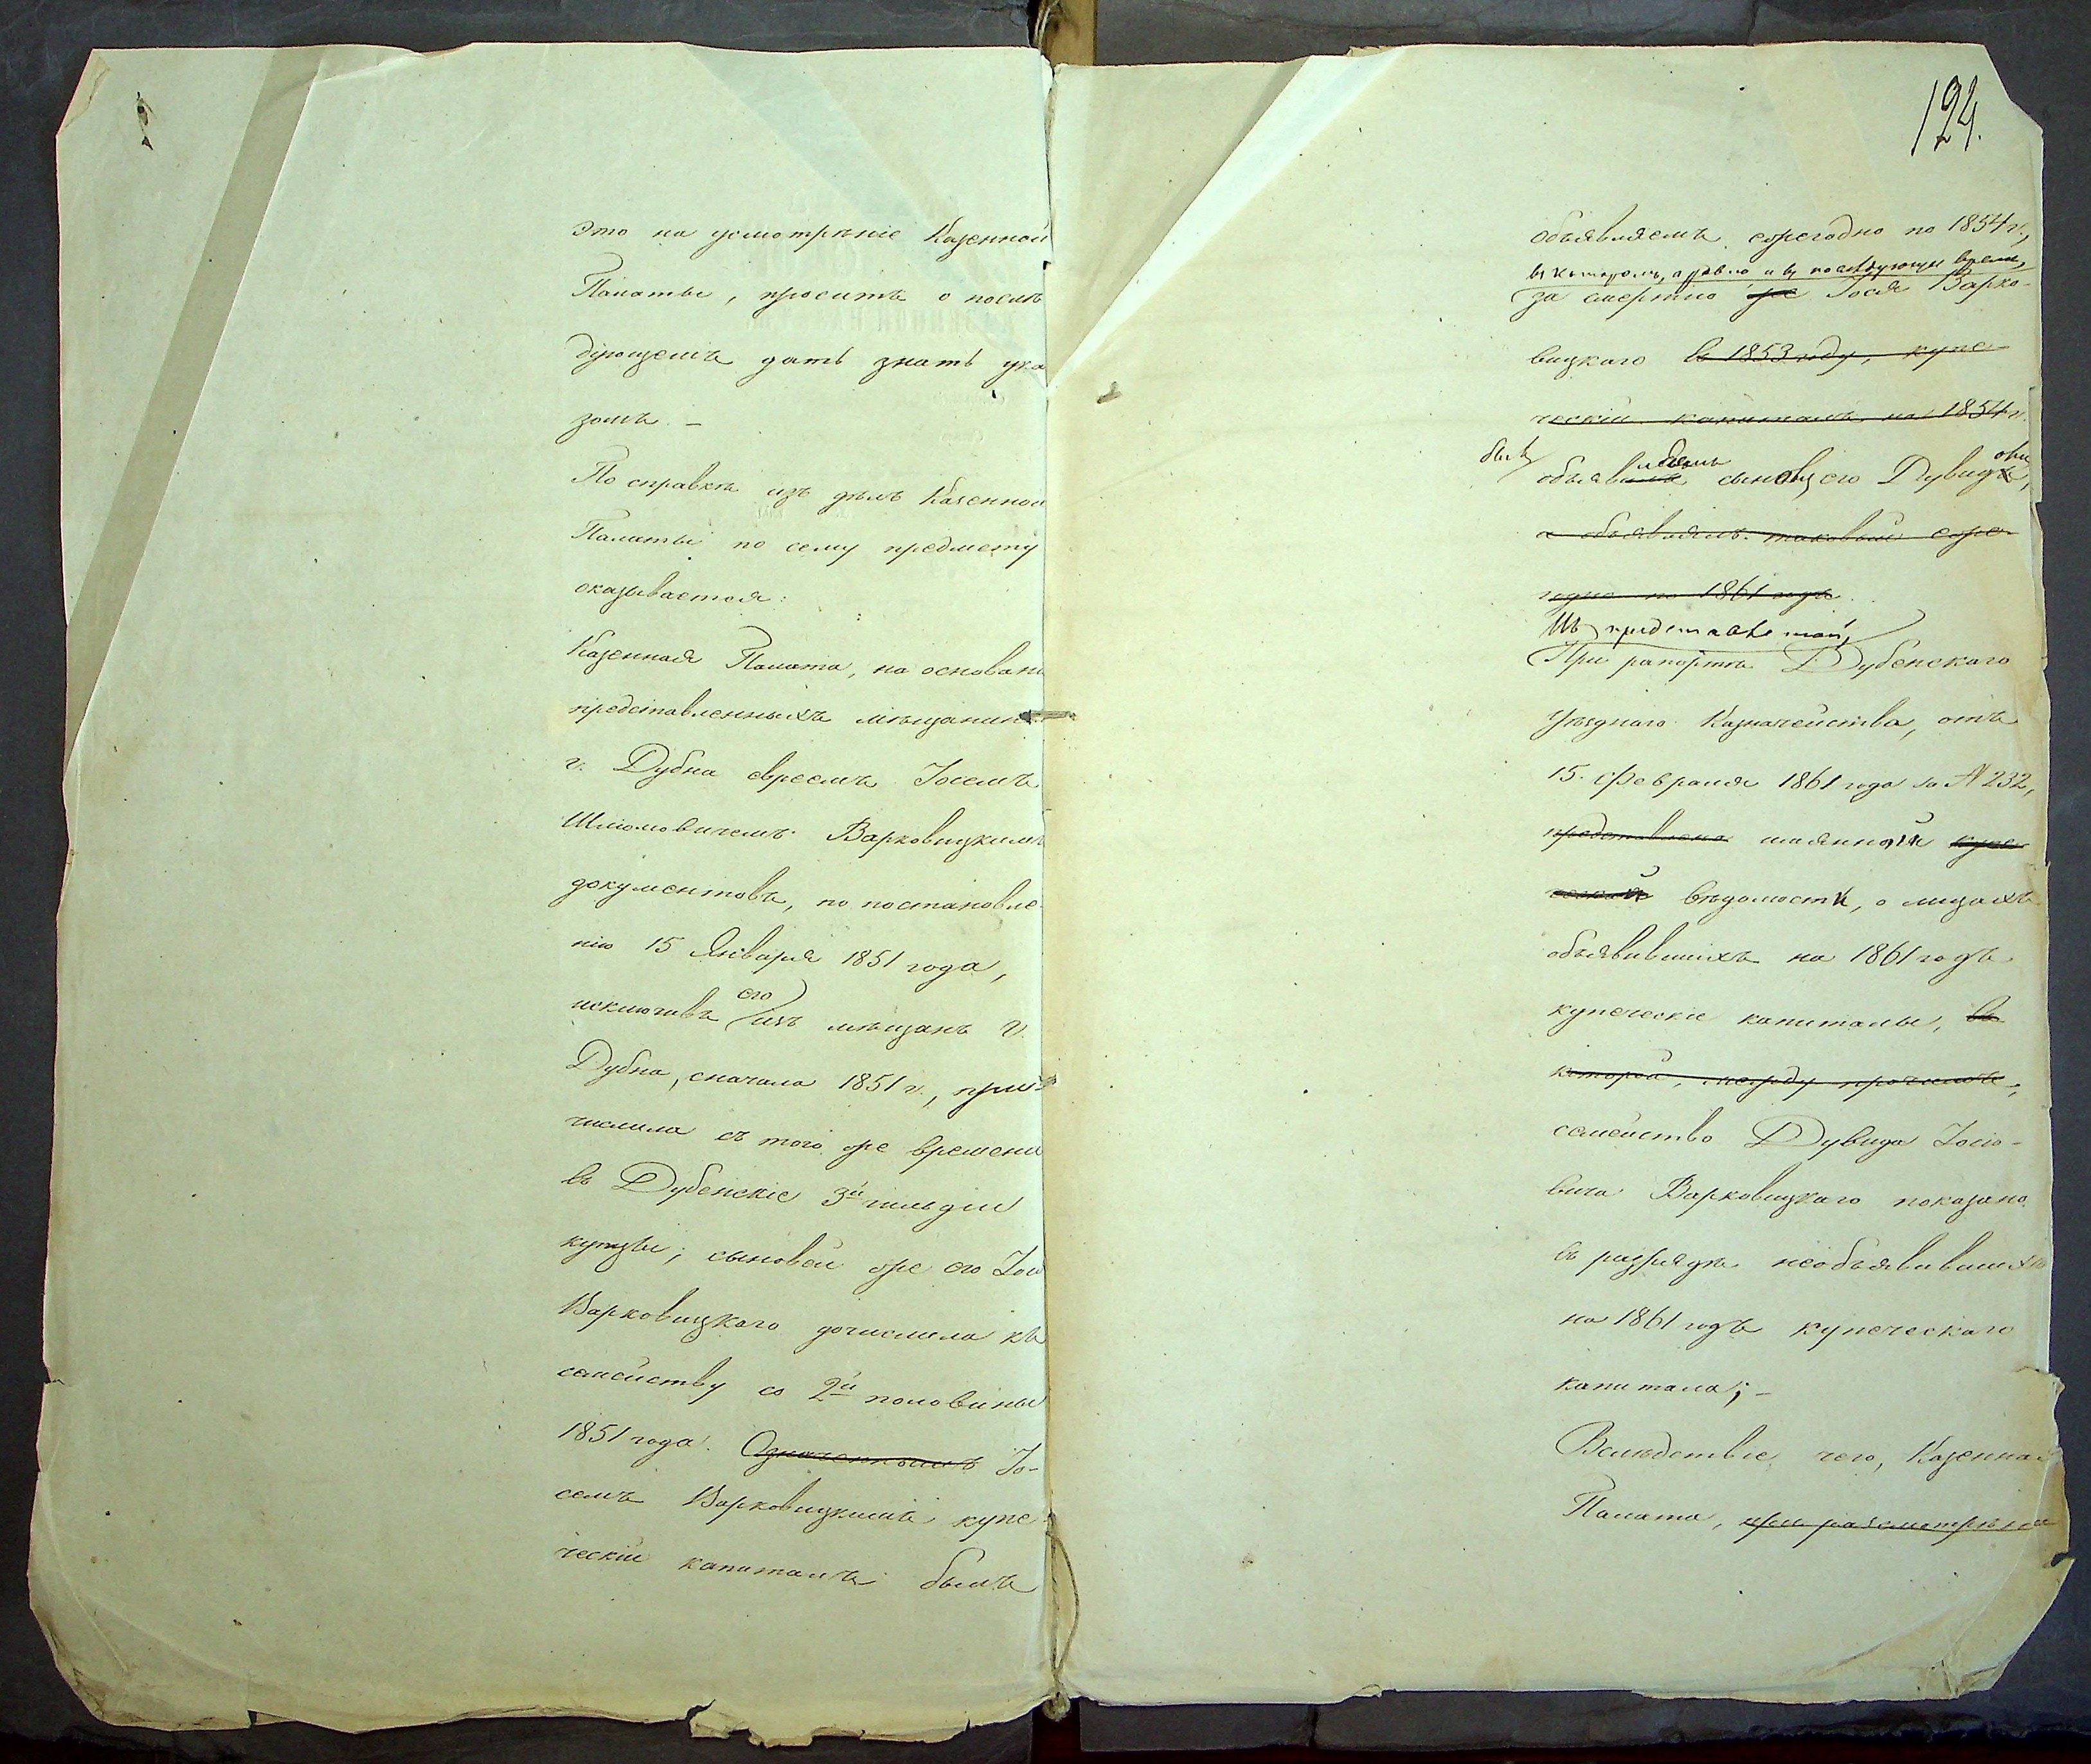 это на усмотрѣніе Казенной
Палаты, проситъ о послѣ
дующемъ дать знать ука
зомъ. –
По справкѣ изъ дѣлъ Казенной
Палаты по сему предмету
оказывается:
Казенная Палата, на основани
представленныхъ мѣщанин
г. Дубна евреемъ Іоселъ
Шліомовичемъ Варковицкимъ
документовъ, по постановле-
нію 15 Января 1851 года,
его
исключивъ изъ мѣщанъ г.
Дубна, сначала 1851 г., при-
числила съ того же времени
въ Дубенскіе 3й гильдіи
купцы; сыновей же его Іос
Варковицкаго дочислила къ
семейству со 2й половины
1851 года. Означеннымъ Іо-
селъ Варковицкимъ купе-
ческій капиталъ былъ
124.
объявляемъ ежегодно по 1854 г.,
въ которомъ, а равно и въ послѣдующее время,
за смертію же Іося Варко-
вицкаго въ 1853 году, купе-
ческій капиталъ на 1854 г.
былъ
объявляемъ сыновъ его Дувидъ,
а объявлялъ таковый еже-
годно по 1861 годъ.
Въ представленной,
При рапортѣ Дубенскаго
Уѣзднаго Казначейства, отъ
15. Февраля 1861 года за № 232,
представлена имянной купе-
ческой вѣдомости, о лицахъ
объявившихъ на 1861 годъ
купеческіе капиталы, въ
которой, между прочимъ,
семейство Дувида Іосіо-
вича Варковицкаго показано
въ разрядѣ необъявившихъ
на 1861 годъ купеческаго
капитала; –
Вслѣдствіе чего, Казенная
Палата, при разсмотрѣніи